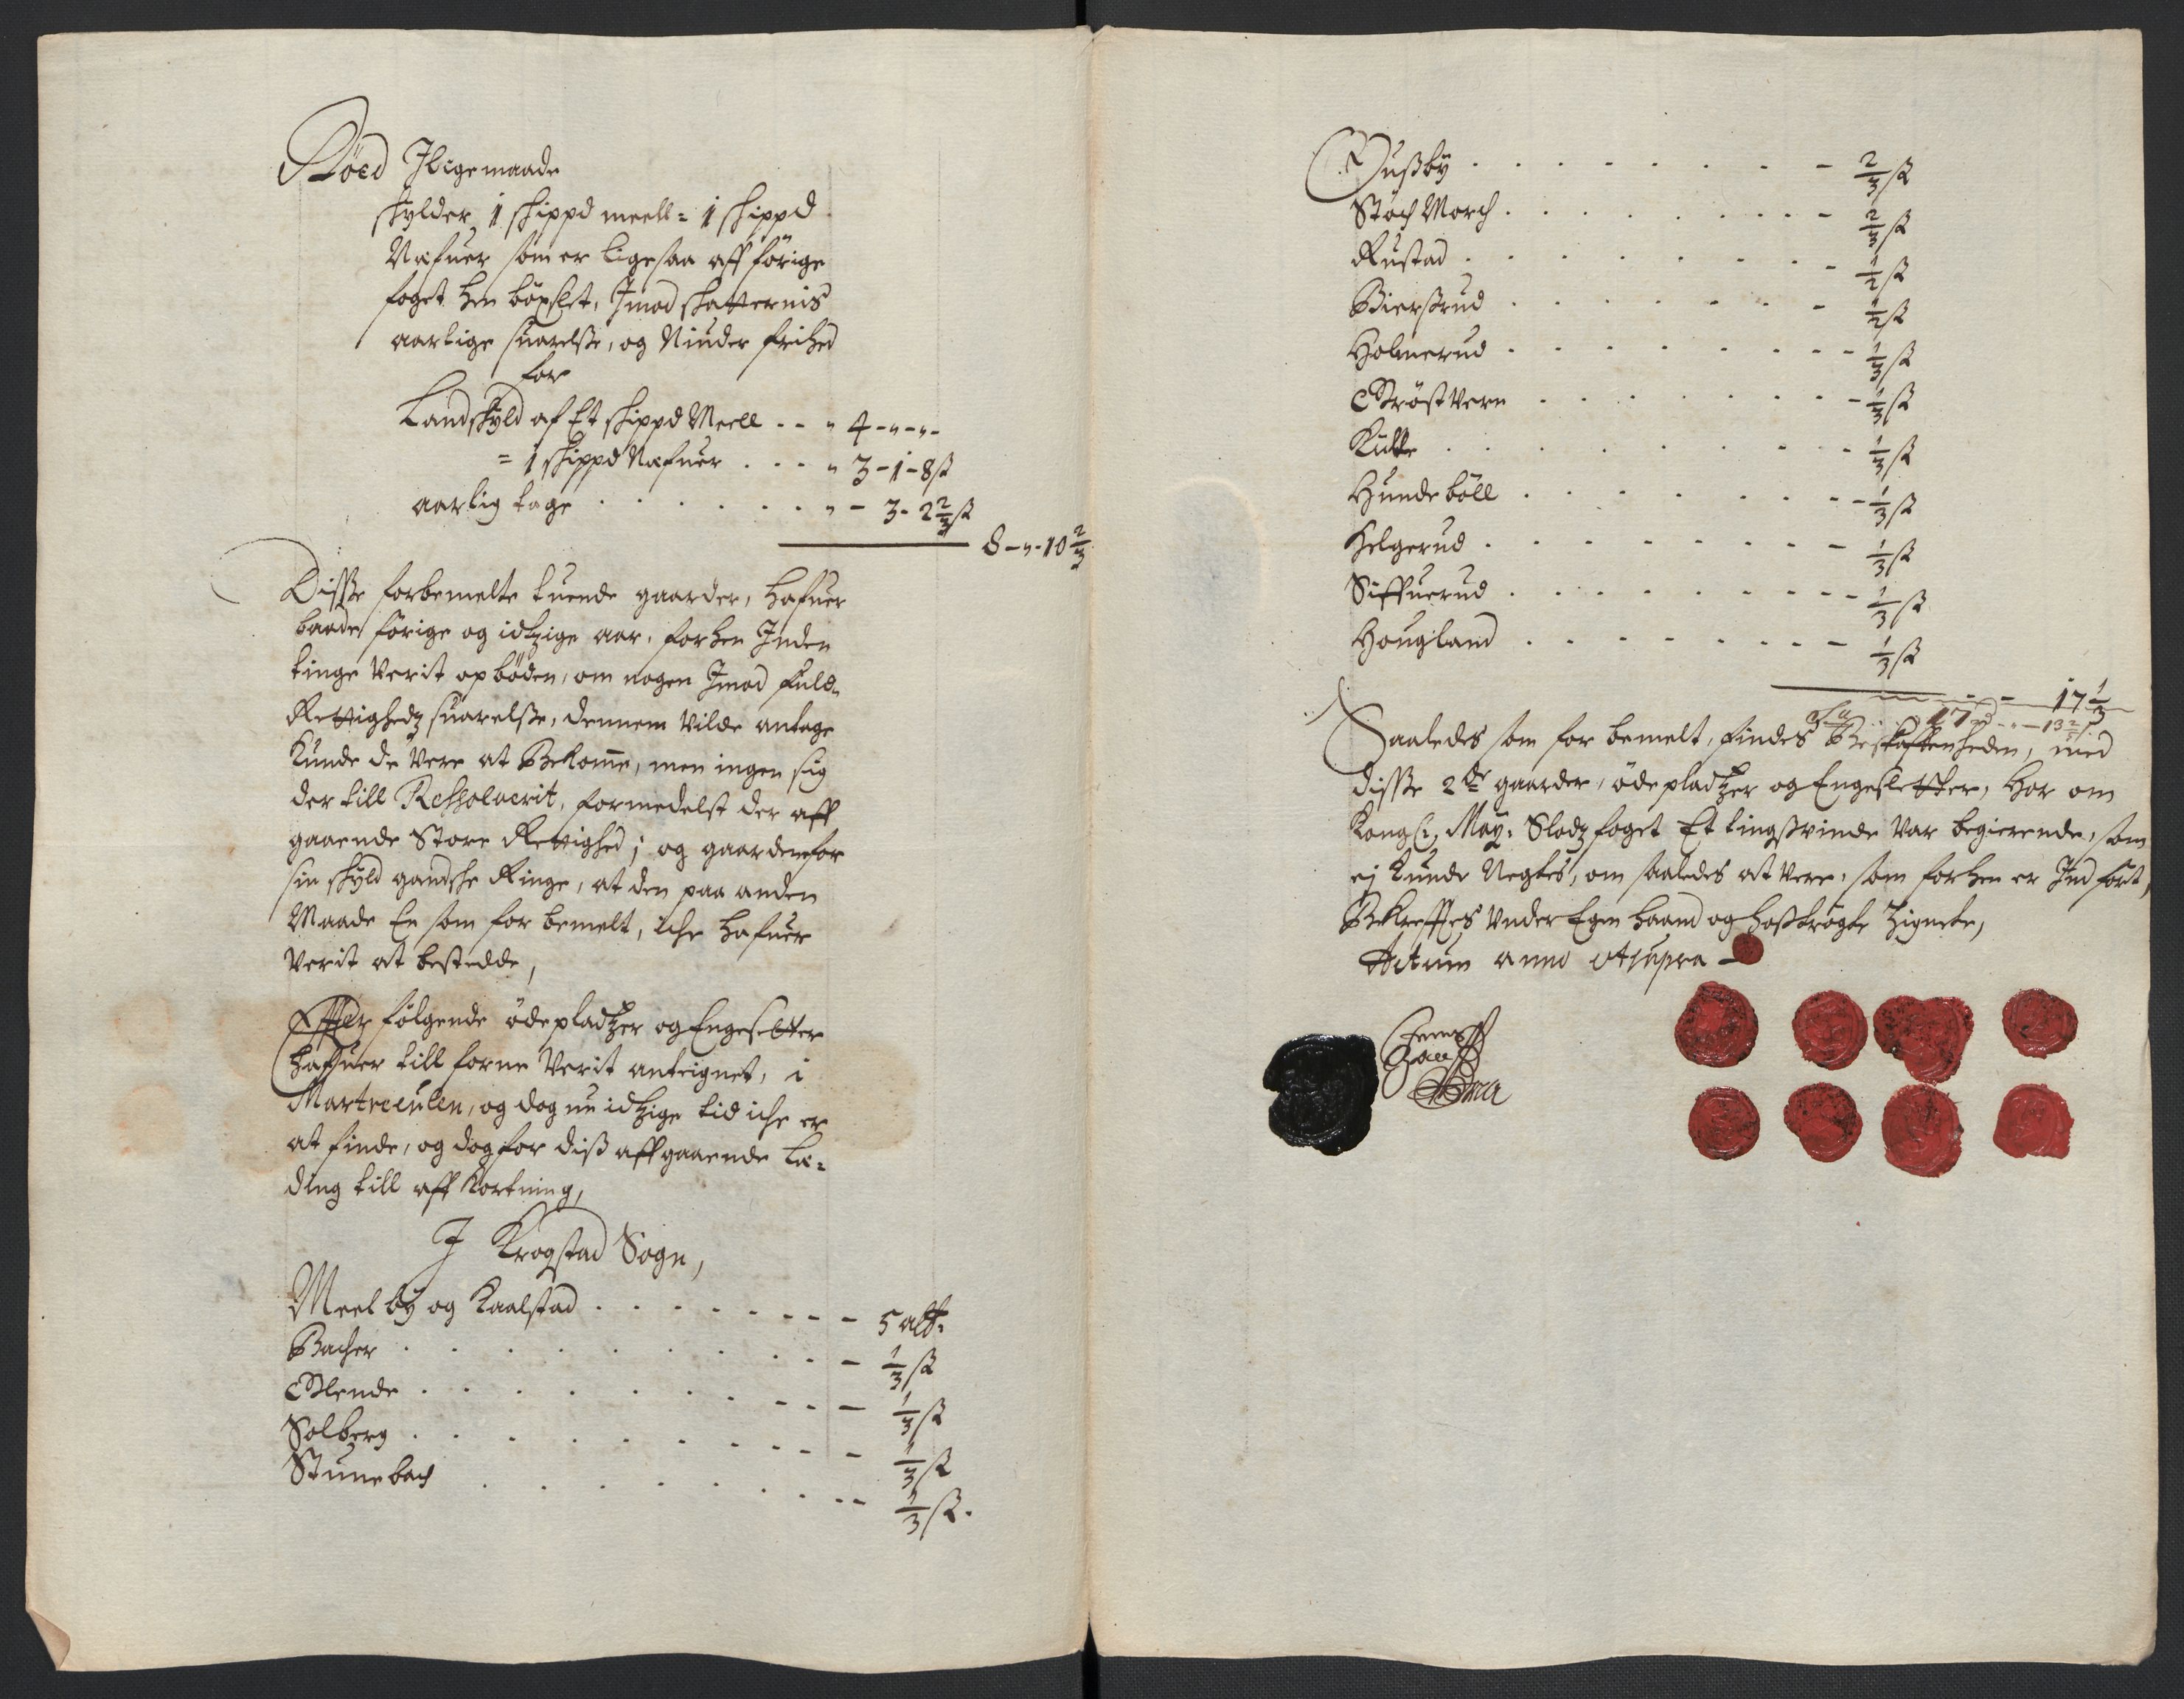 Röed Jligemaade
skylder 1 skippd meell = 1 skippd
Nefuer som er ligesaa aff förige
foget hen böxlet, Jmod skatternis
aarlige suarelsse, og Niuder frihed
for
Landskyld af Et skippd Meell . . „ 4 - „ - „ -
= 1 skippd Nefuer . . . „ 3 - 1 - 8 ß
aarlig tage . . . . . . . „ - 3 - 2 2/3 ß
8 - „ - 10 2/3
Disse forbemelte tuende gaarder, hafuer
baade förige og idtzige aar, forhen Jnden
tinge Verit opböden, om nogen Jmod fuld-
Rettighedz suarelsse, dennem Vilde antage
kunde de Vere at Bekome, men ingen sig
der till Ressoluerit, formedelst der aff
gaaende Store Rettighed; og gaarden for
sin skyld gandske Ringe, at den paa anden
Maade En som for bemelt, iche hafuer
Verit at bestedde,
Effter följgende ödepladtzer og Engesletter
hafuer till forne Verit antegnet, i
Martreculen, og dog nu idtzige tid iche er
at finde, og dog for diss affgaaende Le=
ding till aff kortning,
J Krogstad Sogn,
Meelby og Kaalstad . . . . . . - - - 5 alb:
Bacher . . . . . . . . . . - 1/3 ß
Slende . . . . . . . - - - 1/3 ß
Solberg . . . . . . . . - - 1/3 ß
Stunebach . . . . . . . - - 1/3 ß.
Huszby . . . . . . . . - 2/3 ß
Stöch Morch . . . . . . . . - 2/3 ß
Rustad . . . . . . . . - 1/2 ß
Biersrud . . . . . . . - 1/2 ß
Holmerud . . . . . . . - - 1/3 ß
Tröstvern . . . . . . - - 1/3 ß
Kutte . . . . . . . . - - 1/3 ß
Hundeböll . . . . . . . - - 1/3 ß
Helgerud . . . . . . . . - 1/3 ß
Siffuerud . . . . . . . - - - 1/3 ß
Hougland . . . . . . . - - 1/3 ß
- - 17 1/3
17 - - 13 2/3
Saaledes som for bemelt, findes Beskaffenheden, med
disse 2de gaarder, ödepladtzer og Engesletter, hor om
Kongl: May: Slodz foget Et tingsvinde Var begierende, som
ej kunde Negtes, om saaledes at Vere, som forhen er Jnd fört,
Bekrefftes Vnder Egen haand og hosströgte Zignete,
Actum anno Vtsupra